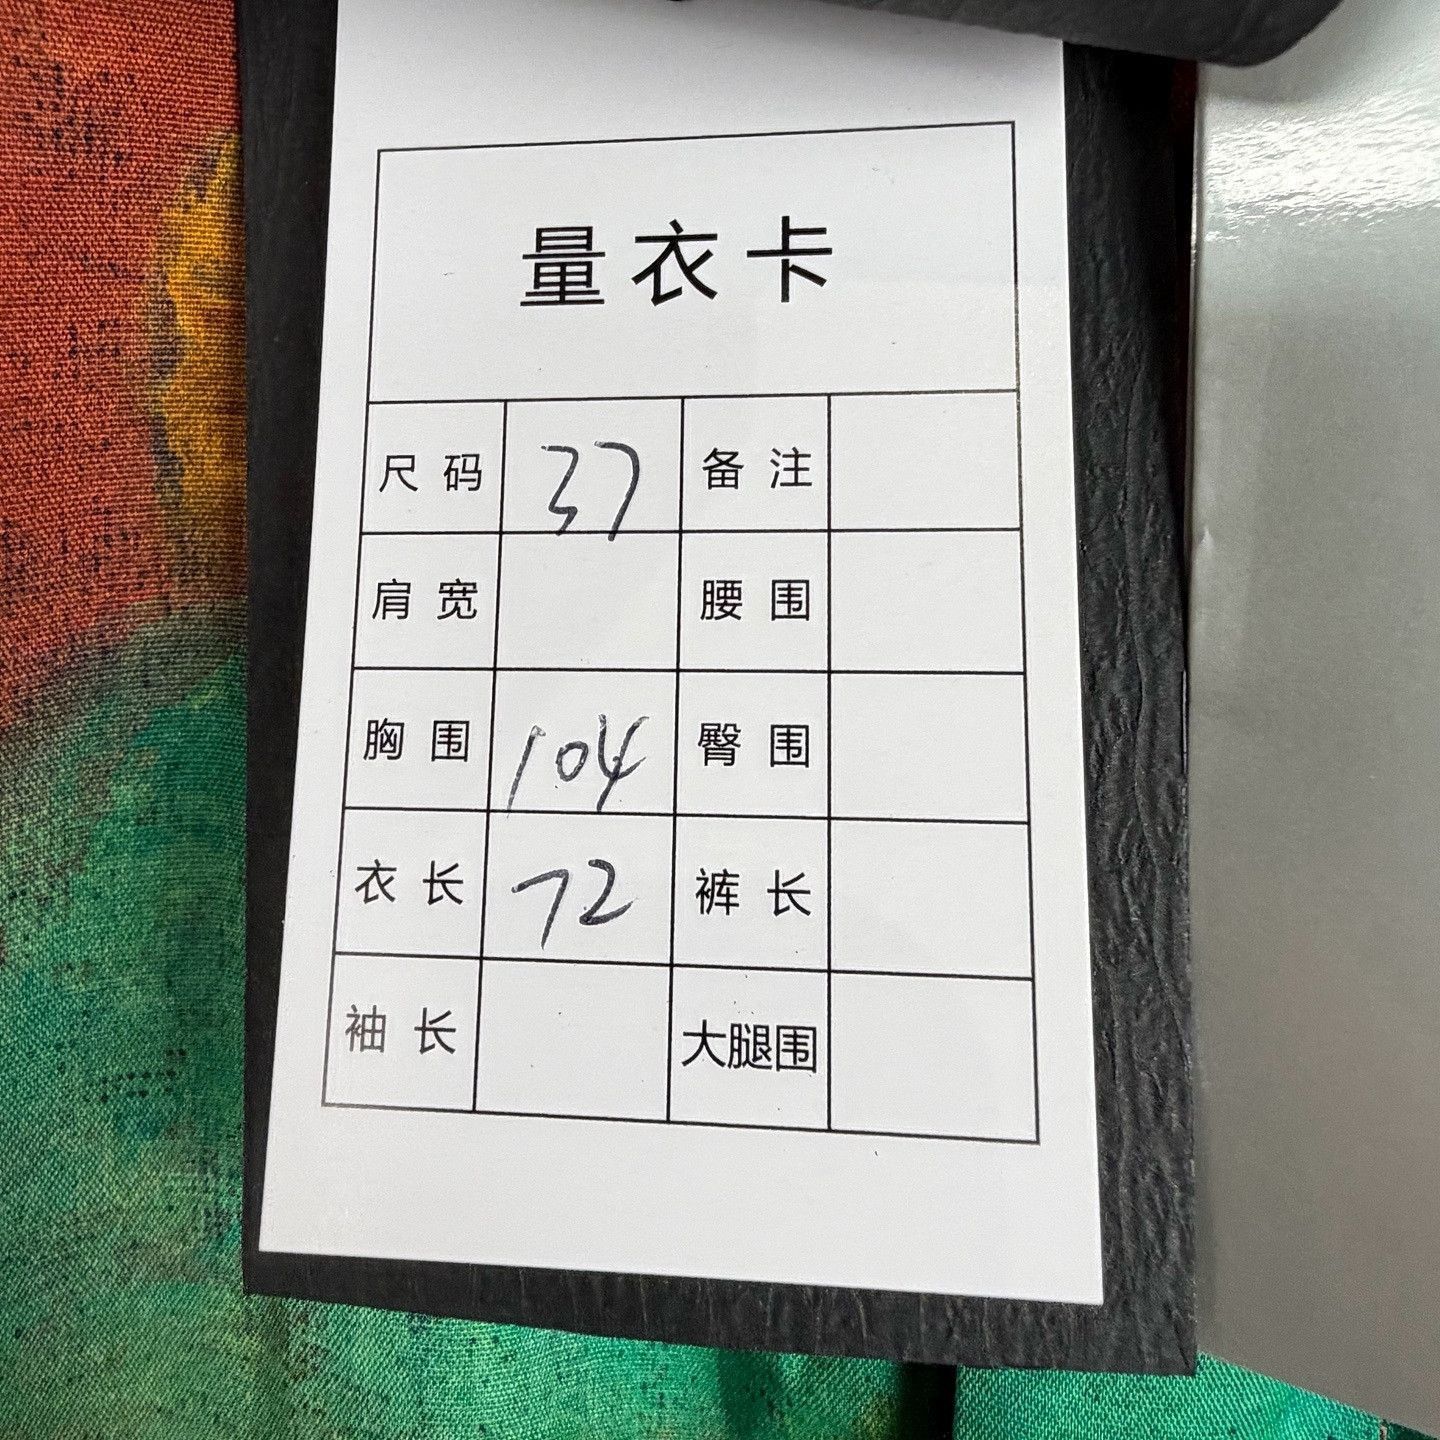 量衣卡
尺码 37 备注
肩宽 腰围
胸围 104 臀围
衣长 72 裤长
袖长 大腿围